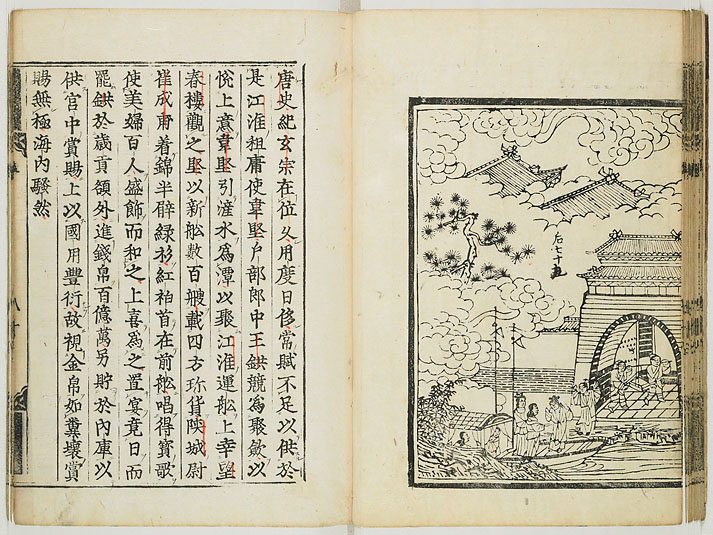 后七十
唐史紀玄宗在位久用度日侈常賦不足以供於
是江淮租庸使韋堅户部郎中王鉷競爲聚斂以
悅上意韋堅引滻水爲潭以聚江淮運舩上幸望
春樓觀之堅以新舩數百艘載四方珍貨陝城尉
崔成甫着錦半臂緑衫紅袙首在前舩唱得寳歌
使美婦百人盛飾而和之上喜爲之置宴竟日而
罷鉷於歲貢額外進錢帛百億萬另貯於內庫以
供宫中賞賜上以國用豐衍故視金帛如糞壤賞
賜無極海內騷然